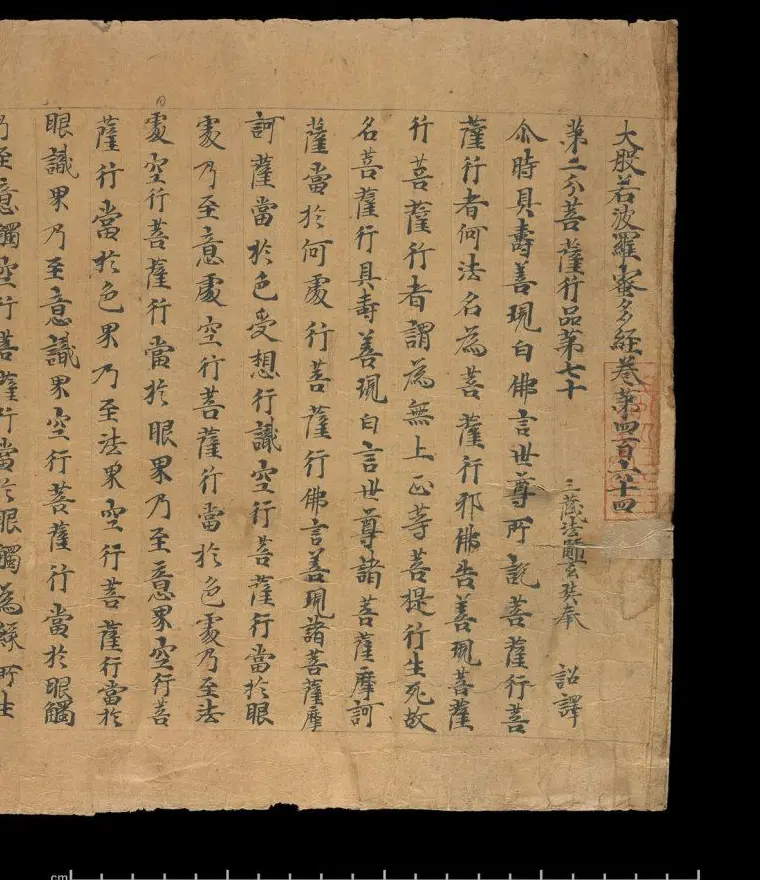 大般若波羅蜜多經卷第四百六十四
第二分菩薩行品第七十 三藏法師玄奘奉 詔譯
尒時具壽善現白佛言世尊所說菩薩行菩
薩行者何法名為菩薩行耶佛告善現菩薩
行菩薩行者謂為無上正等菩提行生死故
名菩薩行具壽善現白言世尊諸菩薩摩訶
薩當於何處行菩薩行佛言善現諸菩薩摩
訶薩當於色受想行識空行菩薩行當於眼
處乃至意處空行菩薩行當於色處乃至法
處空行菩薩行當於眼界乃至意界空行菩
薩行當於色界乃至法界空行菩薩行當於
眼識界乃至意識界空行菩薩行當於眼觸
乃至意觸空行菩薩行當於眼觸為緣所生
cm